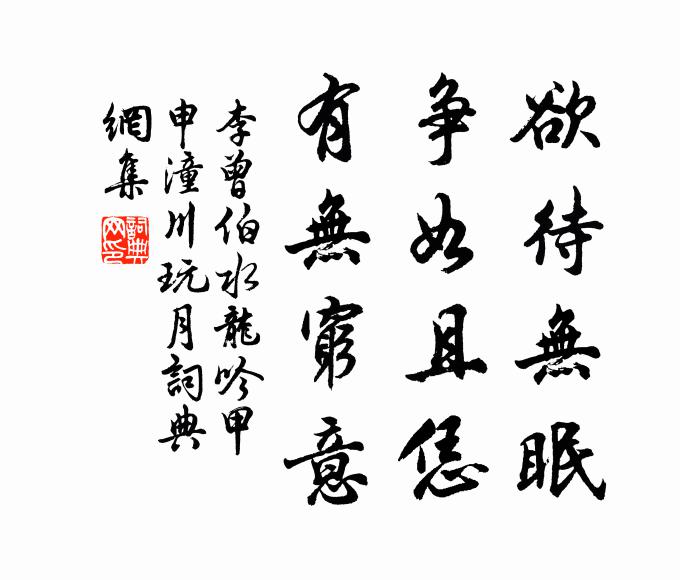 欲待無眠
争如且恁
有無窮意
李曾伯水龍吟甲
申潼川玩月詞典
網集
詞典
网印